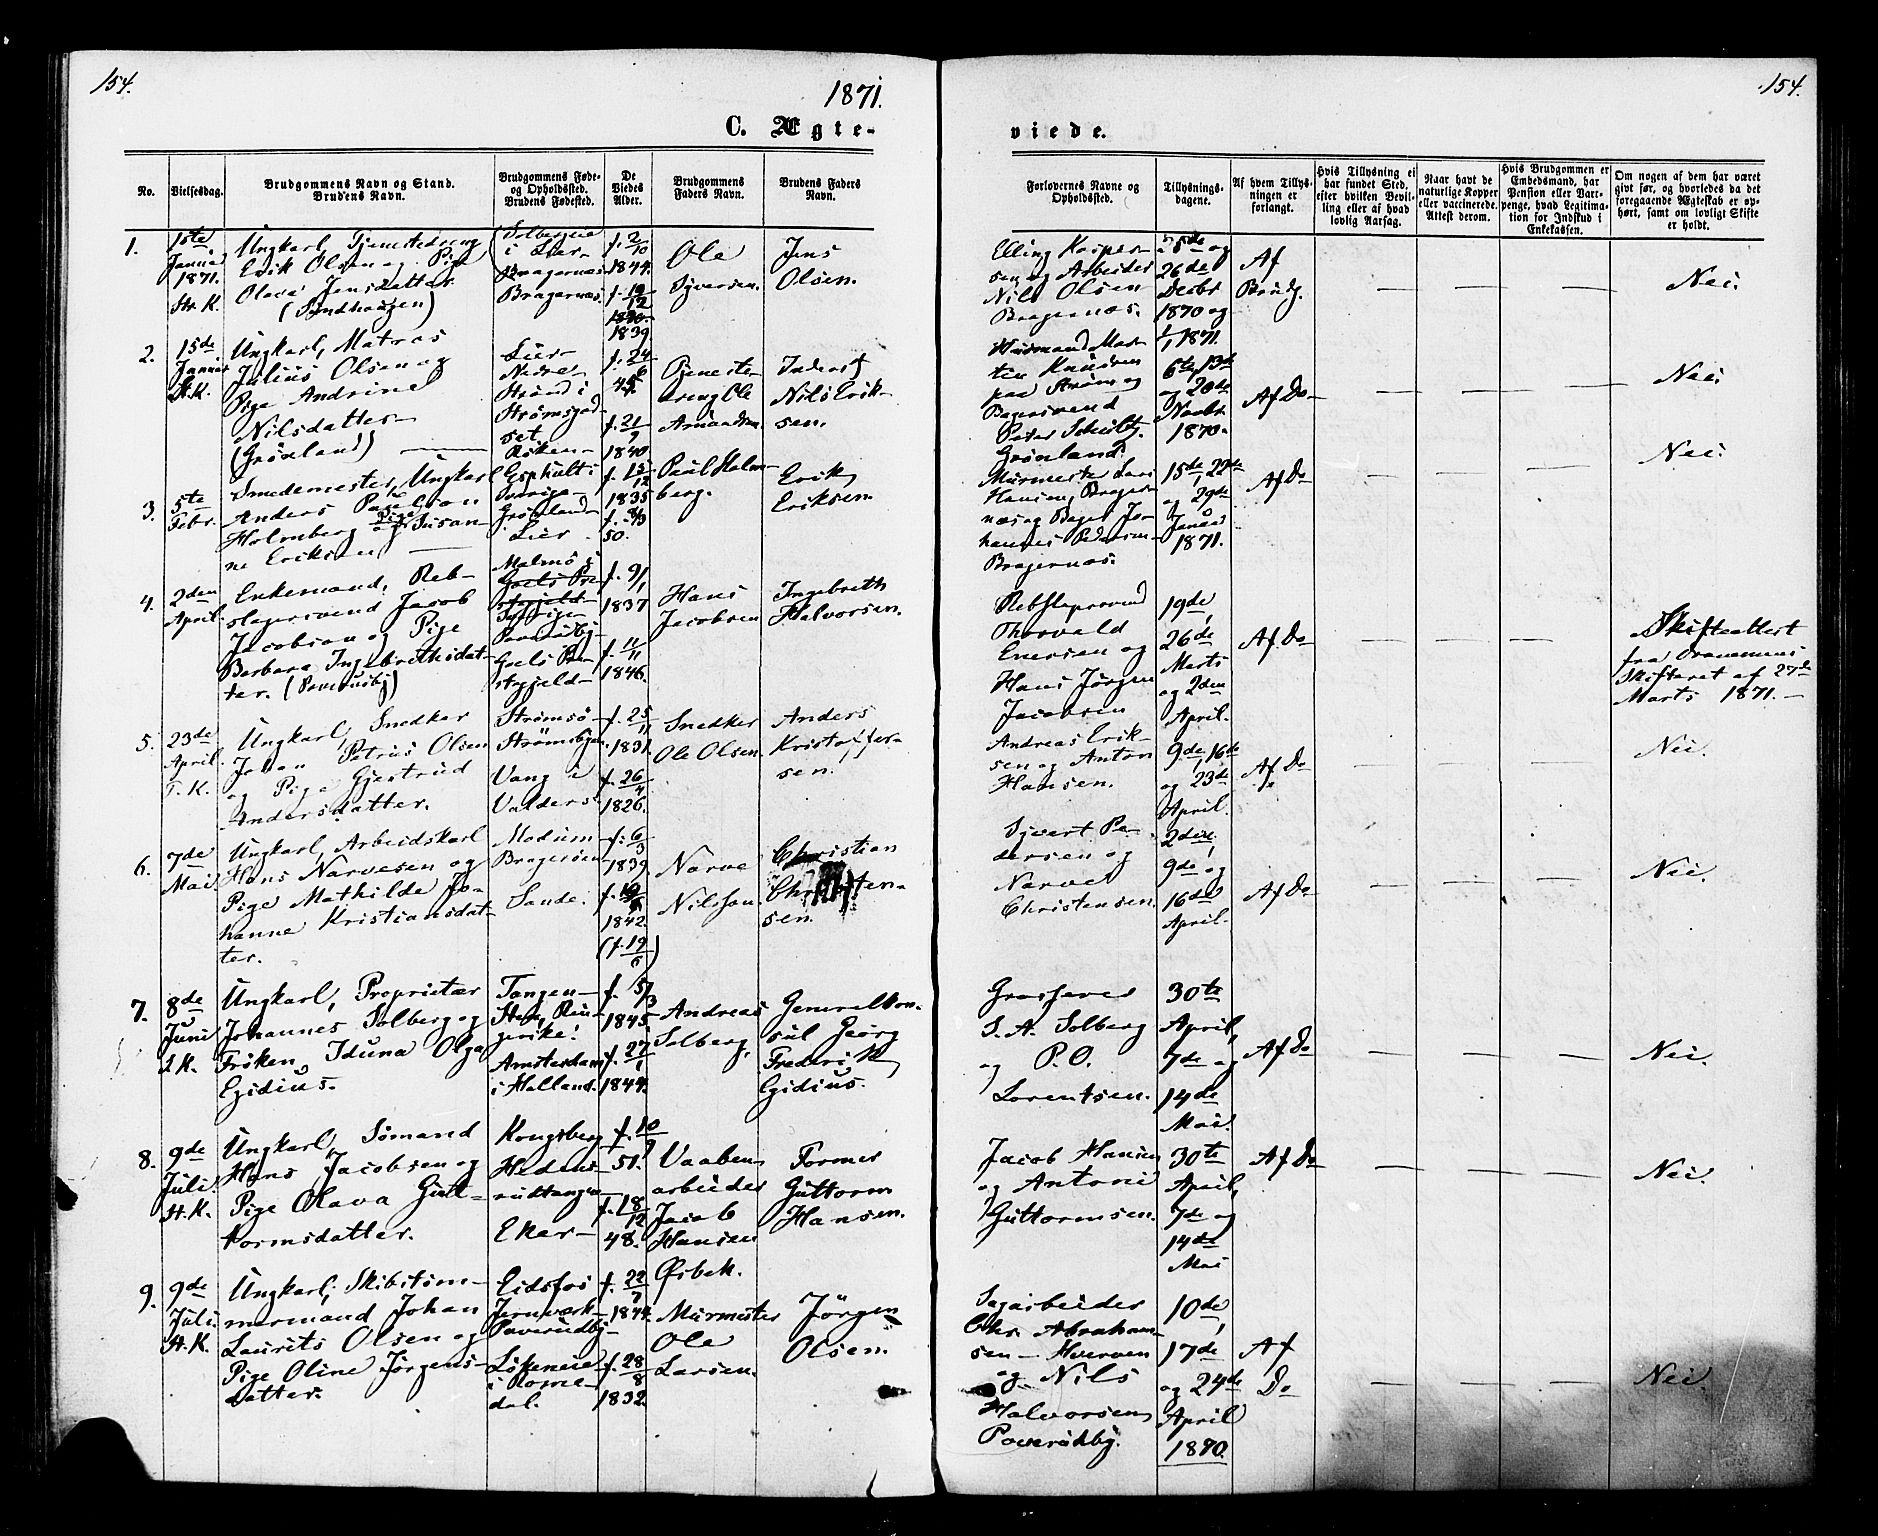 154.
1871.
154.
C. Ægte-
viede.
No.
Vielsesdag.
Brudgommens Navn og Stand.
Brudens Navn.
Brudgommens Føde-
og Opholdssted.
Brudens Fødested.
De
Viedes
Alder.
Brudgommens
Faders Navn.
Brudens Faders
Navn.
Forlovernes Navne og
Opholdssted.
Tillysnings-
dagene.
Af hvem Tillys-
ningen er
forlangt.
Hvis Tillysning ei
har fundet Sted,
efter hvilken Bevil-
ling eller af hvad
lovlig Aarsag.
Naar havt de
naturlige Kopper
eller vaccinerede.
Attest derom.
Hvis Brudgommen er
Embedsmand, har
Pension eller Vart-
penge, hvad Legitima-
tion for Indskud i
Enkekassen.
Om nogen af dem har været
givt før, og hvorledes da det
foregaaende Ægteskab er op-
hørt, samt om lovligt Skifte
er holdt.
1.
1ste
Januar
1871.
St. K.
Ungkarl, Tjenestedreng
Erik Olsen og Pige
Olava Jensdatter
i Lier-
Bragernæs
Bragernæs
f. 2/10
1844.
f. 19/12
1839
Ole
Syversen.
Jens
Olsen.
Elling Kasper-
sen og Arbeider
Nils Olsen
Bragernæs.
25de og
26de
Decbr
1870 og
1/1 1871.
Af
Brudg.
Nei.
2.
15de
Januar
St. K.
Ungkarl, Matros
Julius Olsen og
Pige Andrine
Nilsdatter-
(Grønland)
Lier-
Nedre
Strand i
Strømsgod-
set.
Røken-
f. 24/6
45.
f. 21/9
1840
Tjeneste-
dreng Ole
Amundsen
Inderst
Nils Erik-
sen.
Husmand Mar-
tin Knudsen
paa Strøm og
Bagersvend
Peter Schulty.
Grønland.
6te, 13de
og 20de
Novbr.
1870.
Af Do
Nei.
3.
5te
Febr.
Smedemester, Ungkarl
Anders
Holmberg og Pige Susan-
ne Eriksen
Esphult i
Sverige-
Grønland-
Lier
f. 15/12
1835
50.
Paul Holm-
berg.
Erik
Eriksen
Murmester Lars
Hansen, Brager-
næs og Bager Jo-
hannes Pedersen-
Bragernæs.
15de, 22de
og 29de
Januar
1871.
Af Do
Nei.
4.
2den
April.
Enkemand, Reb-
slagersvend Jacob
Jacobsen og Pige
Barbara Ingebrethsdat-
ter. (Paverudby)
Malmø i
Sverige-
Paverudby
f. 9/1
1837
f. 11/11
1846.
Hans
Jacobsen
Ingebreth
Halvorsen.
Rebslagersvend
Thorvald
Enersen og
Hans Jørgen
Jacobsen
19de,
26de
Marts
og 2den
April.
Af Do
Skifteattest
fra Drammens
Skifteret af 27de
Marts 1871.-
5.
23de
April.
T. K.
Ungkarl, Snedker
Johan Petrus Olsen
og Pige Gjertrud
Andersdatter.
Strømsø-
Strømsbyen.
Vang i
Valders.
f. 25/11
1831.
f. 26/4
1826.
Snedker
Ole Olsen.
Anders
Kristoffer-
sen.
Andreas Erik-
sen og Anton
Hansen.
9de, 16de
og 23de
April.
Af Do
Nei.
6.
7de
Mai
Ungkarl, Arbeidskarl
Hans Narvesen og
Pige Mathilde Jo-
hanne Kristiansdat-
ter.
Modum-
Bragerøen
Sande.
f. 6/3
1839.
1842.
(f. 19/6)
Narve
Nilssen.
Christian
Christen-
sen.
Syvert Pe-
dersen og
Narve
Christensen.
2den,
9de og
16de
April.
Af Do
Nei.
7.
8de
Juni
S. K.
Ungkarl, Proprietær
Johannes Solberg og
Frøken Iduna Olga
Egidius.
Tangen-
Hen, Rin-
gerike.
Amsterdam
i Holland.
f. 5/3
1845.
f. 27/1
1844.
Andreas
Solberg,
Generalkon-
sul Georg
Frederik
Egidius.
Grosserer
S. A. Solberg
og P. O.
Lorentsen.
30te
April,
7de og
14de
Mai.
Af Do
Nei.
8.
9de
Juli.
St. K.
Ungkarl, Sømand
Hans Jacobsen og
Pige Olava Gut-
tormsdatter.
Kongsberg
Hedens-
rudtangen
Eker-
f. 10/9
51.
f. 18/12
48.
Vaaben-
arbeider
Jacob
Hansen
Øsbek.
Former
Guttorm
Hansen.
Jacob Hansen
og Antoni
Guttormsen.
30te
April,
7de og
14de
Mai
Af Do
Nei.
9.
9de
Juli.
St. K.
Ungkarl, Skibstøm-
mermand Johan
Laurits Olsen og
Pige Oline Jørgens-
datter.
Eidsfos
Jernværk-
Paverudby-
Løkeneie
i Rome-
dal.
f. 22/7
1844.
f. 28/8
1832.
Murmester
Ole
Larsen.
Jørgen
Olsen.
Sagarbeider
Chr. Abraham-
sen - Hverven
og Nils
Halvorsen
Paverudby.
10de,
17de
og 24de
April
1870.
Af
Do
Nei.